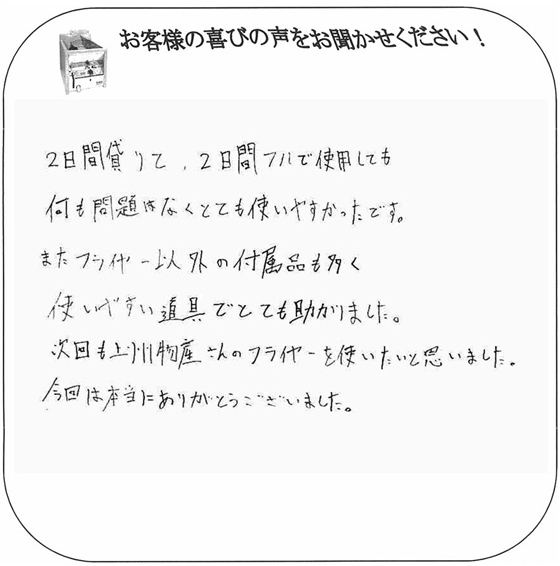 お客様の喜びの声をお聞かせください!
2日間貸りて、2日間フルで使用しても
何も問題はなくとても使いやすかったです。
またフライヤー以外の付属品も多く
使いやすい道具でとても助かりました。
次回も上州物産さんのフライヤーを使いたいと思いました。
今回は本当にありがとうございました。